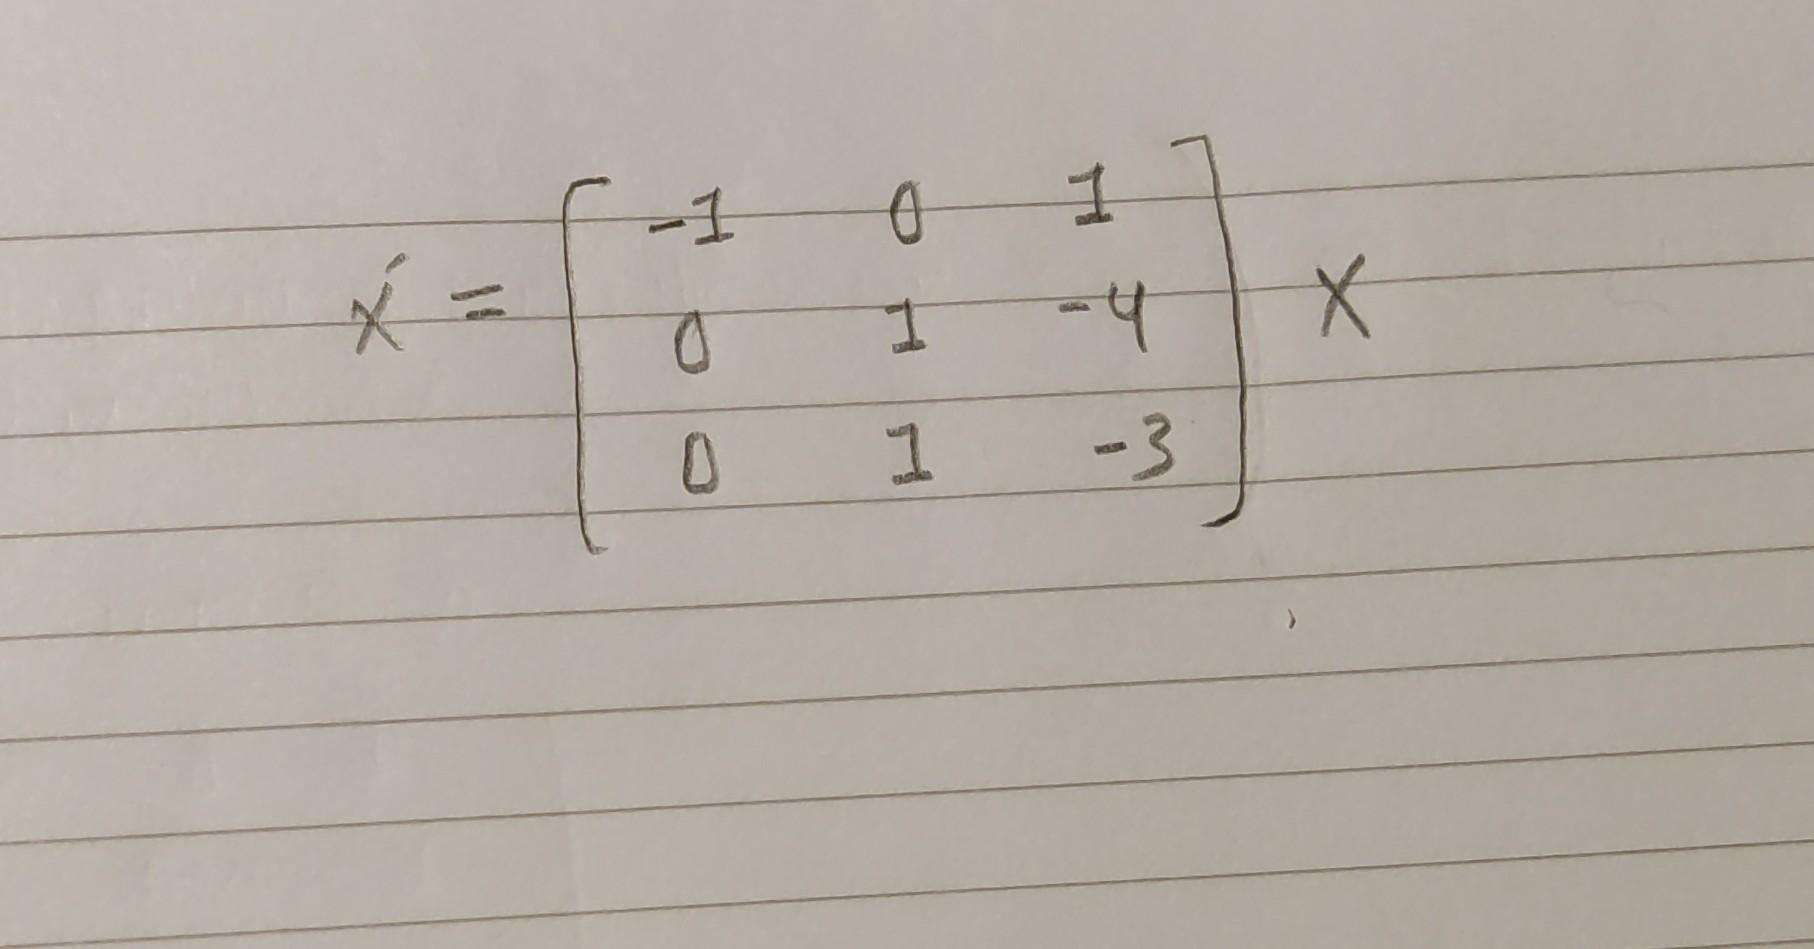 x' = [ -1 0 1
0 1 -4
0 1 -3 ] x